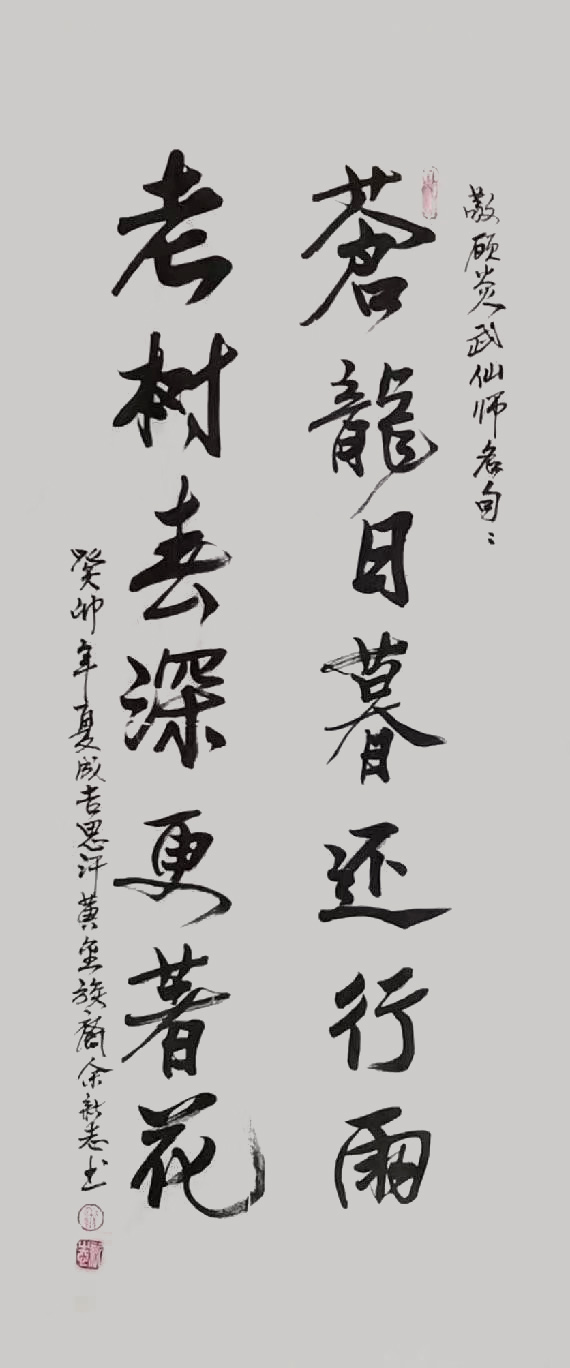 敬顾炎武仙师名句：
蒼龍日暮还行雨
老树春深更著花
癸卯年夏成吉思汗黄金族裔余新志书